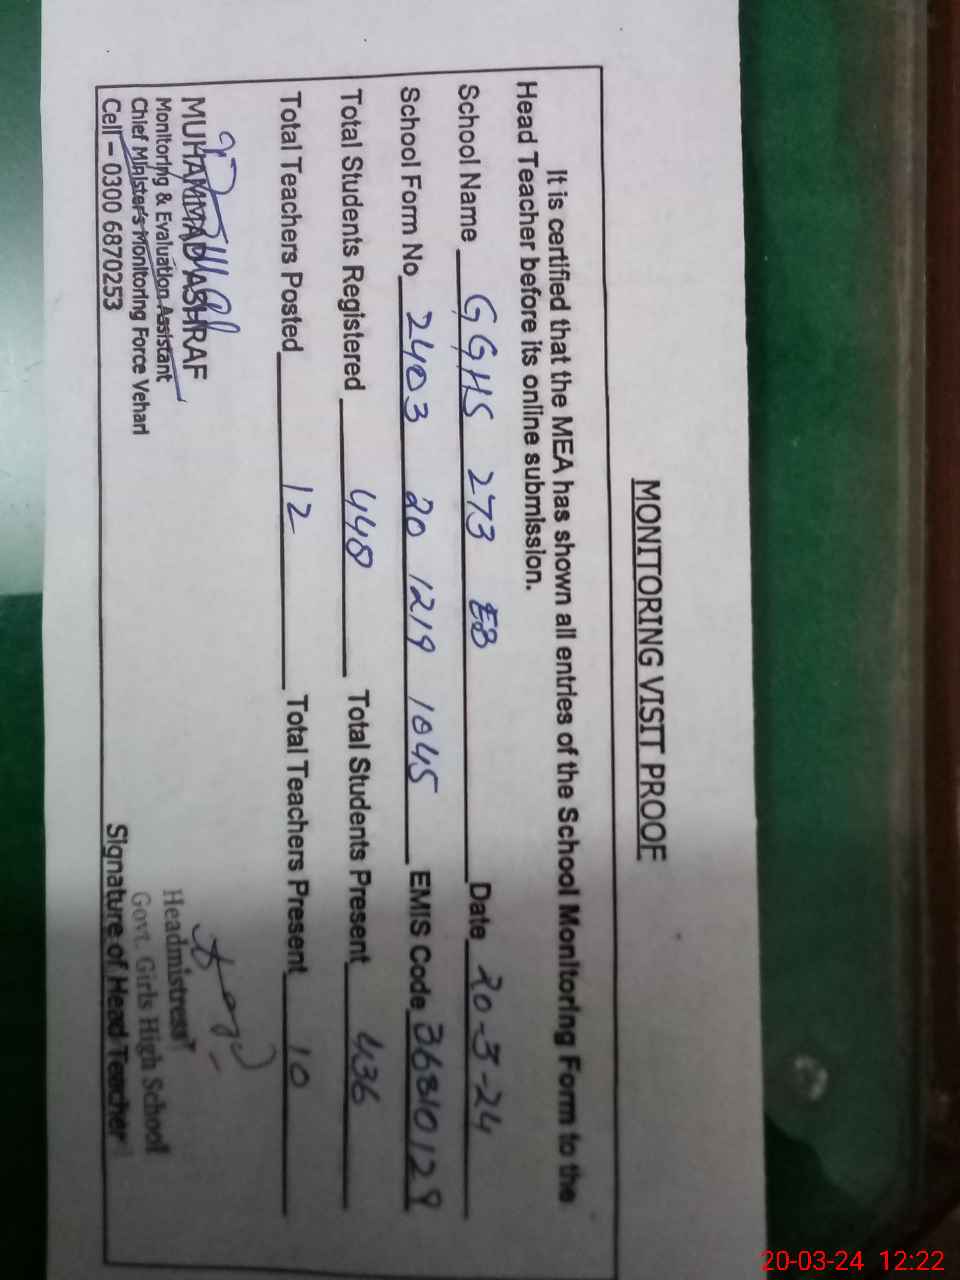 MONITORING VISIT PROOF
It is certified that the MEA has shown all entries of the School Monitoring Form to the
Head Teacher before its online submission.
School Name GGHS 273 EB Date 20-3-24
School Form No 2403 20 1219 1045 EMIS Code 36810129
Total Students Registered 448 Total Students Present 436
Total Teachers Posted 12 Total Teachers Present 10
MUHAMMAD ASHRAF
Monitoring & Evaluation Assistant
Chief Minister's Monitoring Force Vehari
Cell – 0300 6870253
Headmistress
Govt. Girls High School
Signature of Head Teacher
20-03-24 12:22